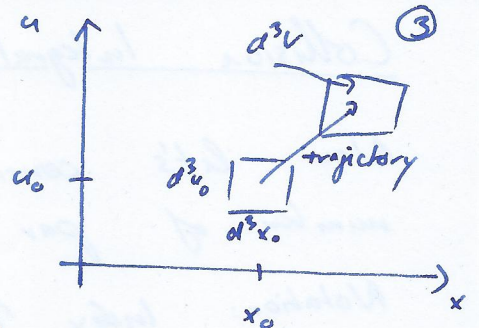 u
d³V
③
trajectory
u₀
d³u₀
d³x₀
x₀
x